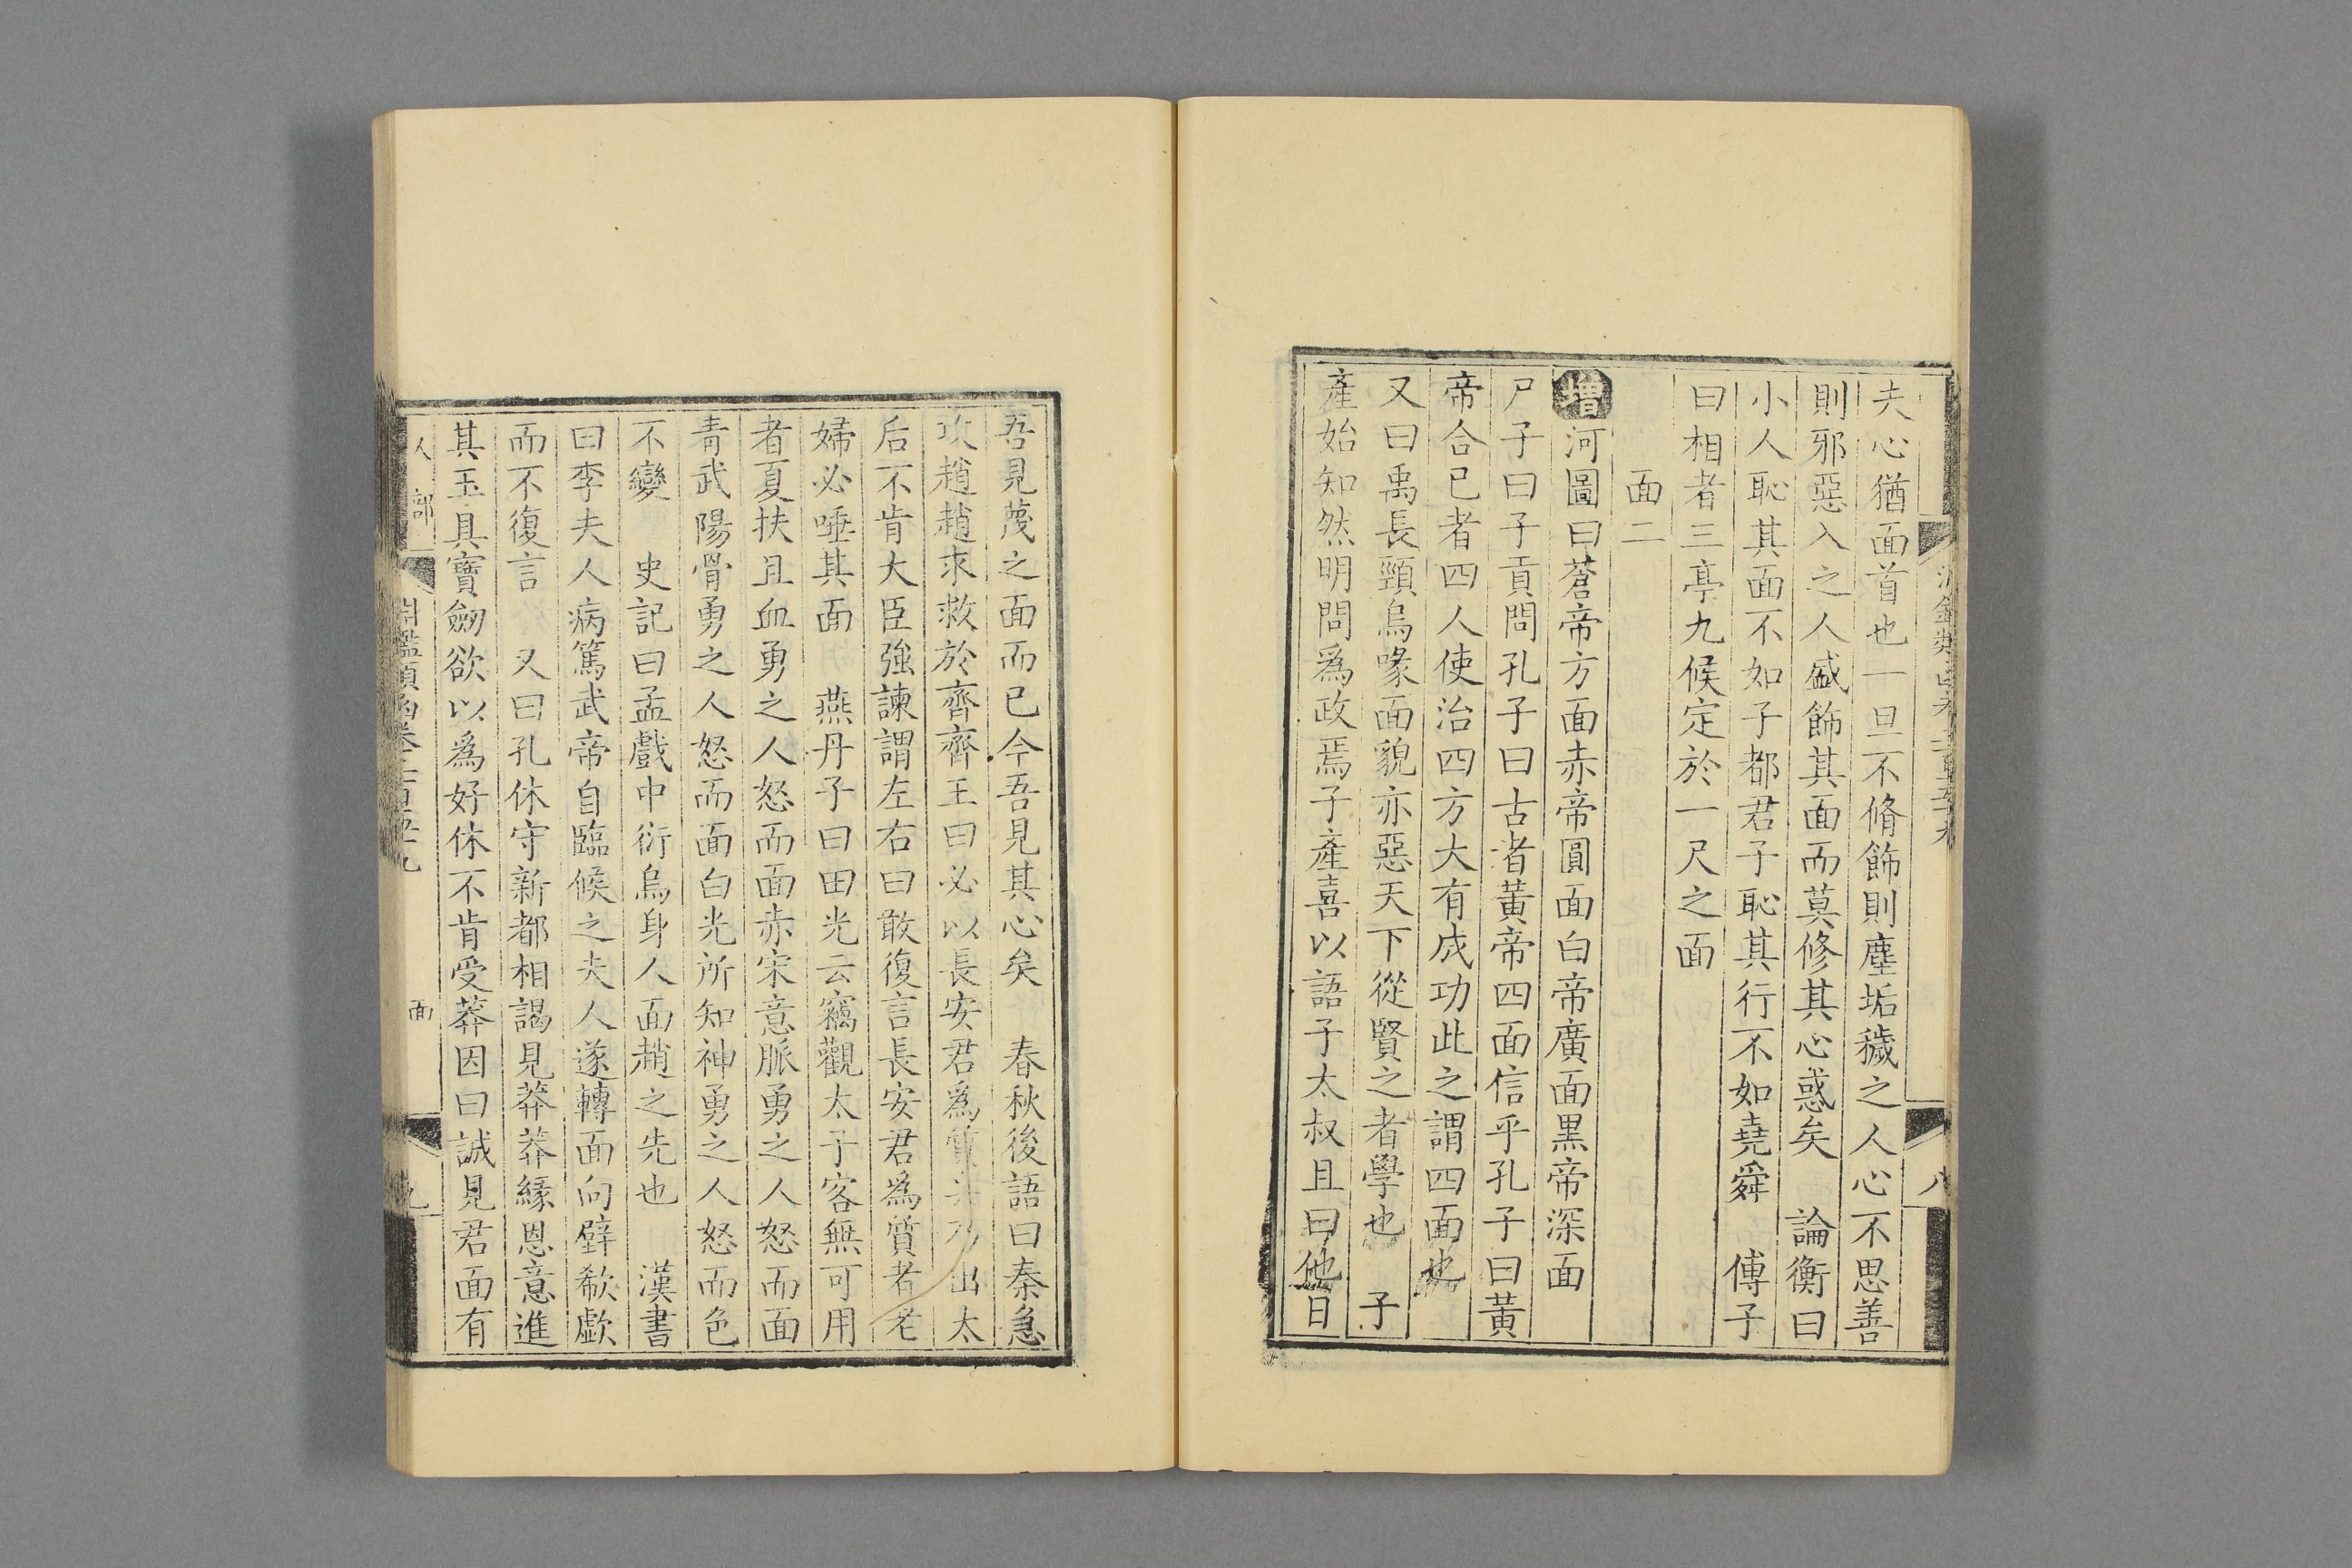 夫心猶面首也一旦不脩飾則塵垢穢之人心不思善
則邪惡入之人盛飾其面而莫修其心惑矣　論衡曰
小人恥其面不如子都君子恥其行不如堯舜　傅子
曰相者三亭九候定於一尺之面
面二
增河圖曰蒼帝方面赤帝圓面白帝廣面黑帝深面
尸子曰子貢問孔子曰古者黃帝四面信乎孔子曰黃
帝合已者四人使治四方大有成功此之謂四面也
又曰禹長頸烏喙面貌亦惡天下從賢之者學也　子
產始知然明問為政焉子產喜以語子太叔且曰他日
吾見蔑之面而已今吾見其心矣　春秋後語曰秦急
攻趙趙求救於齊齊王曰必以長安君為質出太
后不肯大臣強諫謂左右曰敢復言長安君為質者老
婦必唾其面　燕丹子曰田光云竊觀太子客無可用
者夏扶且血勇之人怒而面赤宋意脈勇之人怒而面
青武陽骨勇之人怒而面白光所知神勇之人怒而色
不變　史記曰孟戲中衍鳥身人面趙之先也　漢書
曰李夫人病篤武帝自臨候之夫人遂轉面向壁欷歔
而不復言　又曰孔休守新都相謁見莽莽緣恩意進
其玉具寶劒欲以為好休不肯受莽因曰誠見君面有
人部
淵鑑類函卷二百五十九
面